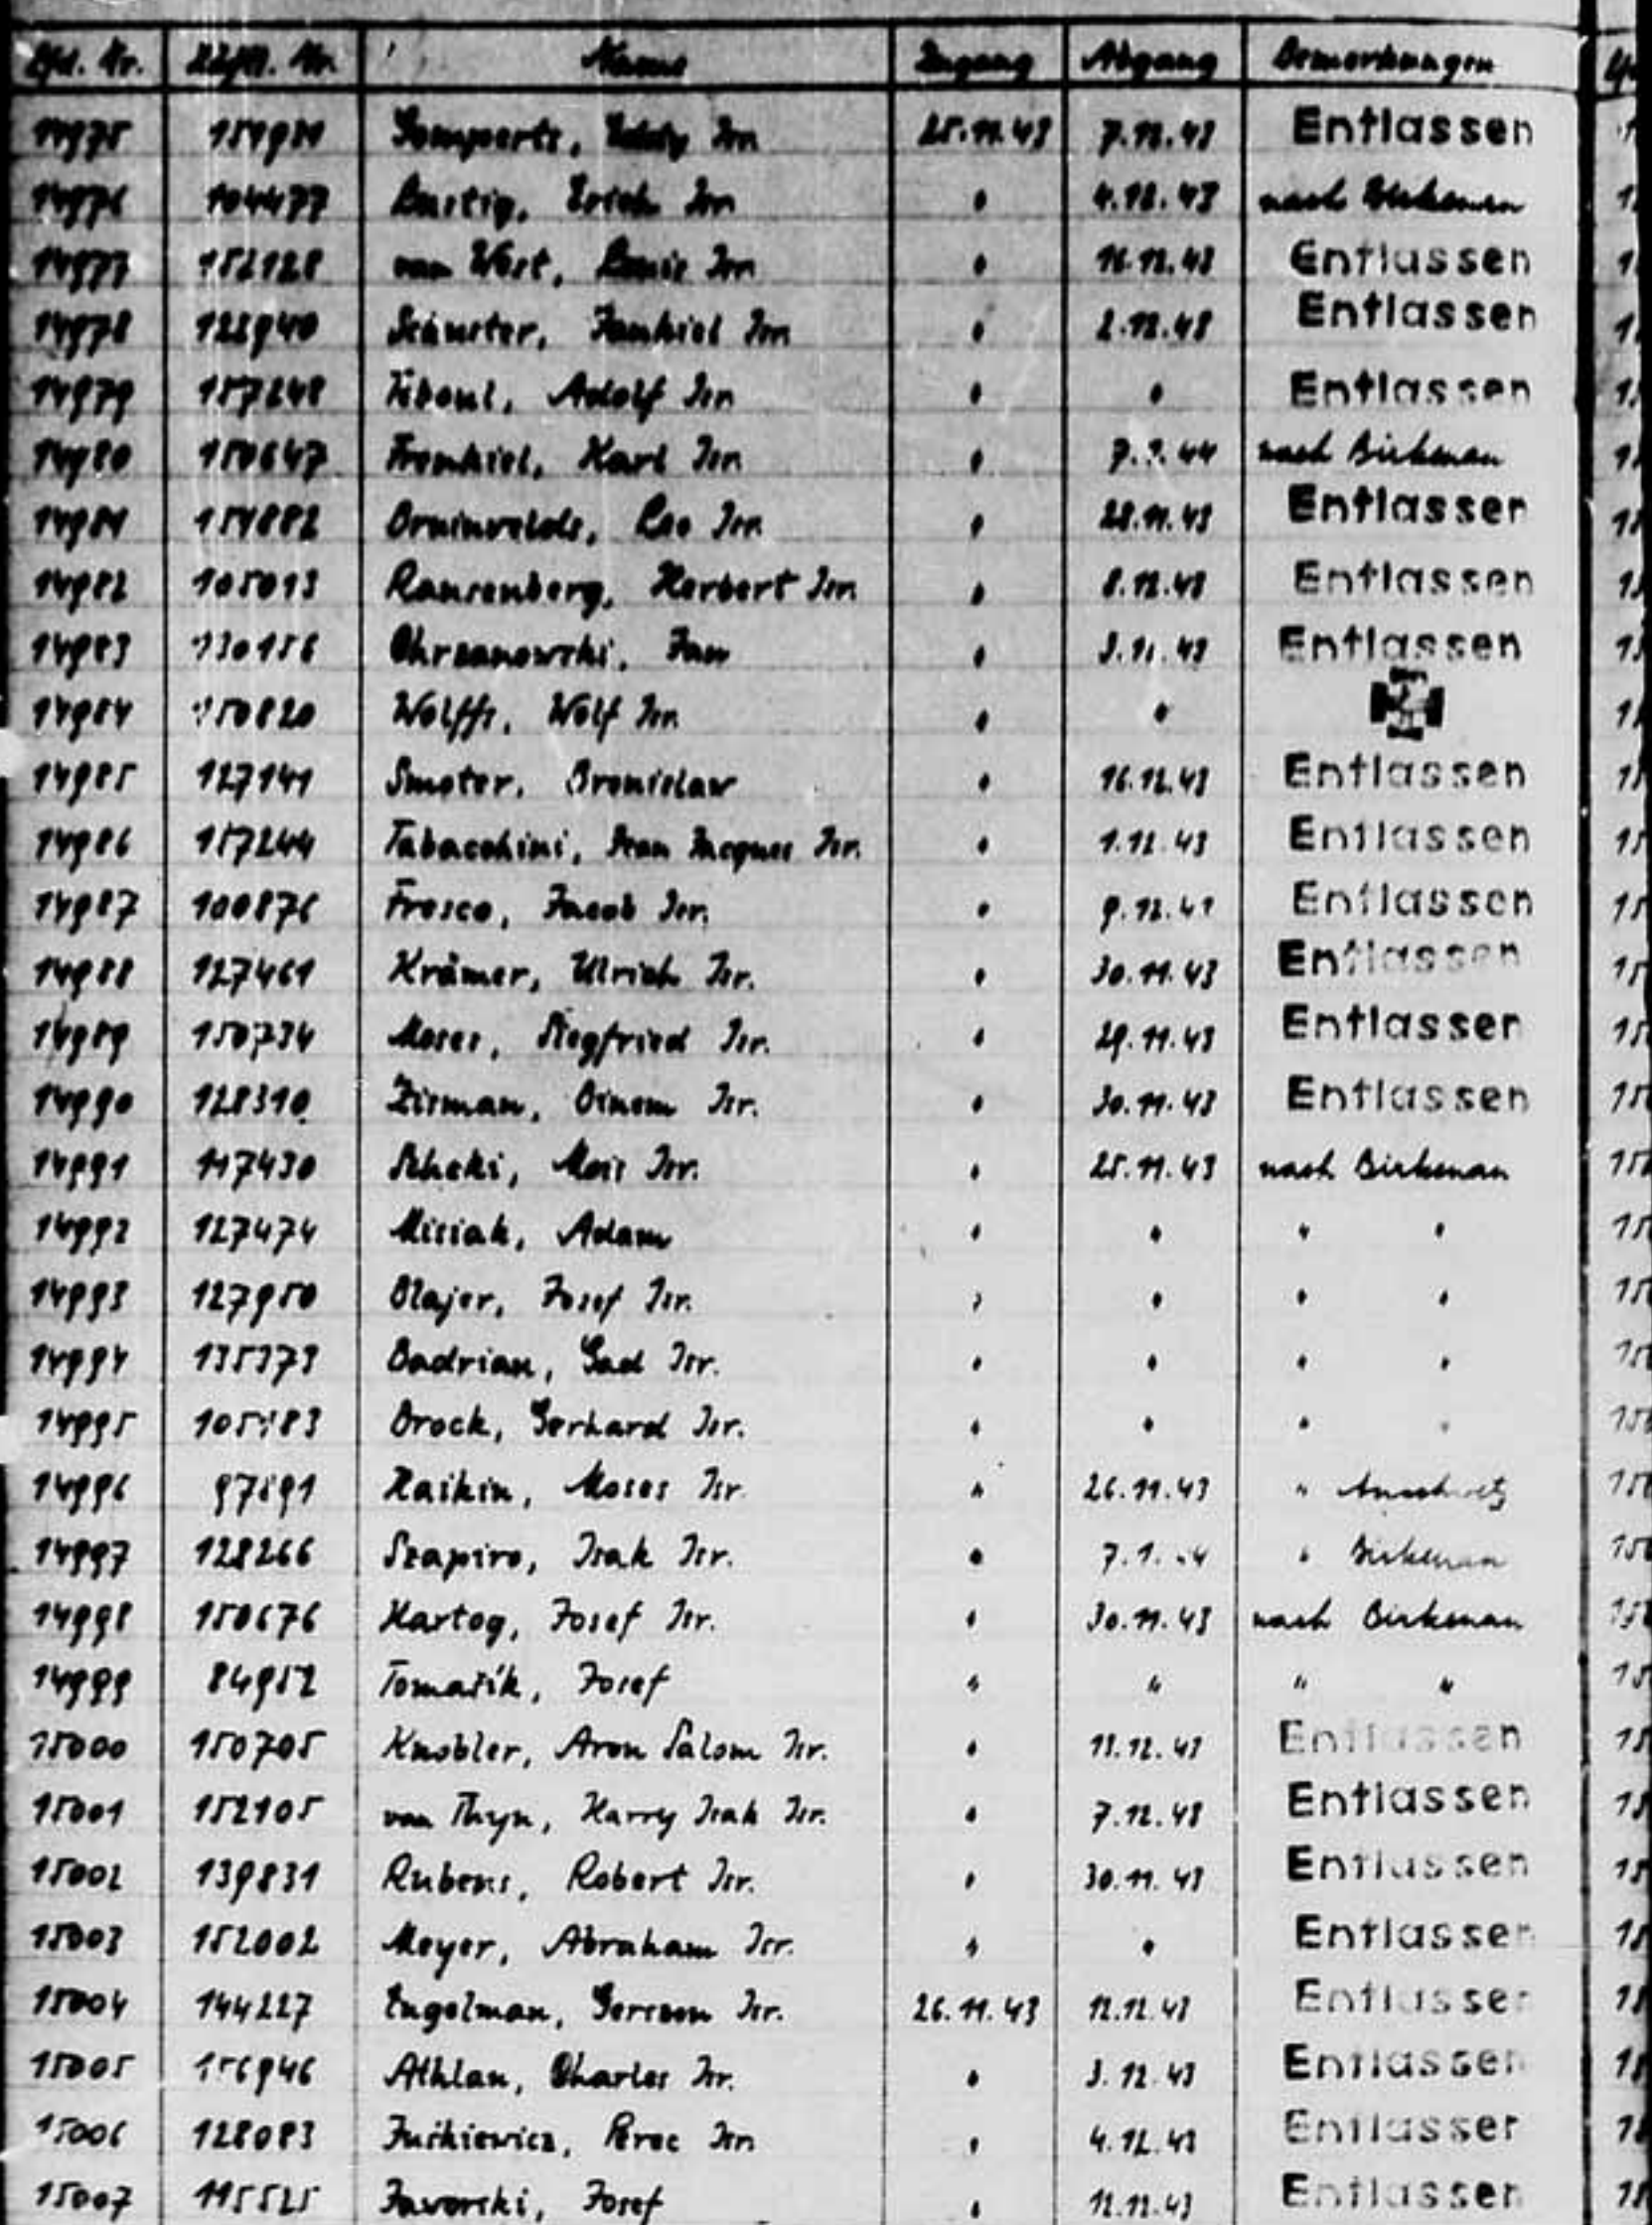 Lfd. Nr. Häftl. Nr. Name Zugang Abgang Bemerkungen
14975 Gomperts, Isr. 25.11.43 7.12.43 Entlassen
14976 104477 Lustig, Erich Isr. " 4.12.43 nach Birkenau
14977 152128 van West, Isr. " 16.12.43 Entlassen
14978 128940 Schuster, Jankiel Isr. " 2.12.43 Entlassen
14979 157248 Adolf Isr. " " Entlassen
14980 150647 Frenkiel, Karl Isr. " nach Birkenau
14981 151882 Leo Isr. " 28.11.43 Entlassen
14982 105013 Herbert Isr. " 8.12.43 Entlassen
14983 130156 Chrzanowski, Jan " Entlassen
14984 150820 Wolffs, Wolf Isr. " "
14985 127141 Smoter, Bronislaw " 16.12.43 Entlassen
14986 157244 Tabacchini, Jean Jacques Isr. " 1.12.43 Entlassen
14987 100876 Fresco, Jacob Isr. " 9.12.43 Entlassen
14988 127461 Krämer, Ulrich Isr. " 30.11.43 Entlassen
14989 150734 Moses, Siegfried Isr. " 29.11.43 Entlassen
14990 128310 Zisman, Isr. " 30.11.43 Entlassen
14991 117430 Isr. " 25.11.43 nach Birkenau
14992 127474 Misiak, Adam " " " "
14993 127950 Olajer, Josef Isr. " " " "
14994 135373 Badrian, Gad Isr. " " " "
14995 Brock, Gerhard Isr. " " " "
14996 Haikin, Moses Isr. " 26.11.43 " Auschwitz
14997 128266 Szapiro, Isak Isr. " 7.1.44 " Birkenau
14998 150676 Hartog, Josef Isr. " 30.11.43 nach Birkenau
14999 84952 Tomašik, Josef " " " "
15000 150705 Knobler, Aron Salom Isr. " 11.12.43 Entlassen
15001 152105 van Thyn, Harry Isak Isr. " 7.12.43 Entlassen
15002 139831 Rubens, Robert Isr. " 30.11.43 Entlassen
15003 152002 Meyer, Abraham Isr. " " Entlassen
15004 144227 Engelman, Gerson Isr. 26.11.43 12.12.43 Entlassen
15005 156946 Athlan, Charles Isr. " 3.12.43 Entlassen
15006 128083 Isr. " 4.12.43 Entlassen
15007 115525 Jaworski, Josef " 12.12.43 Entlassen